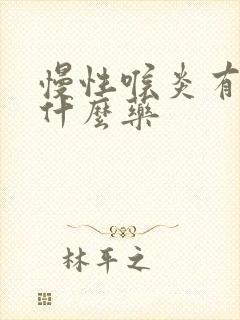 慢性喉炎有
什麼藥
林平之